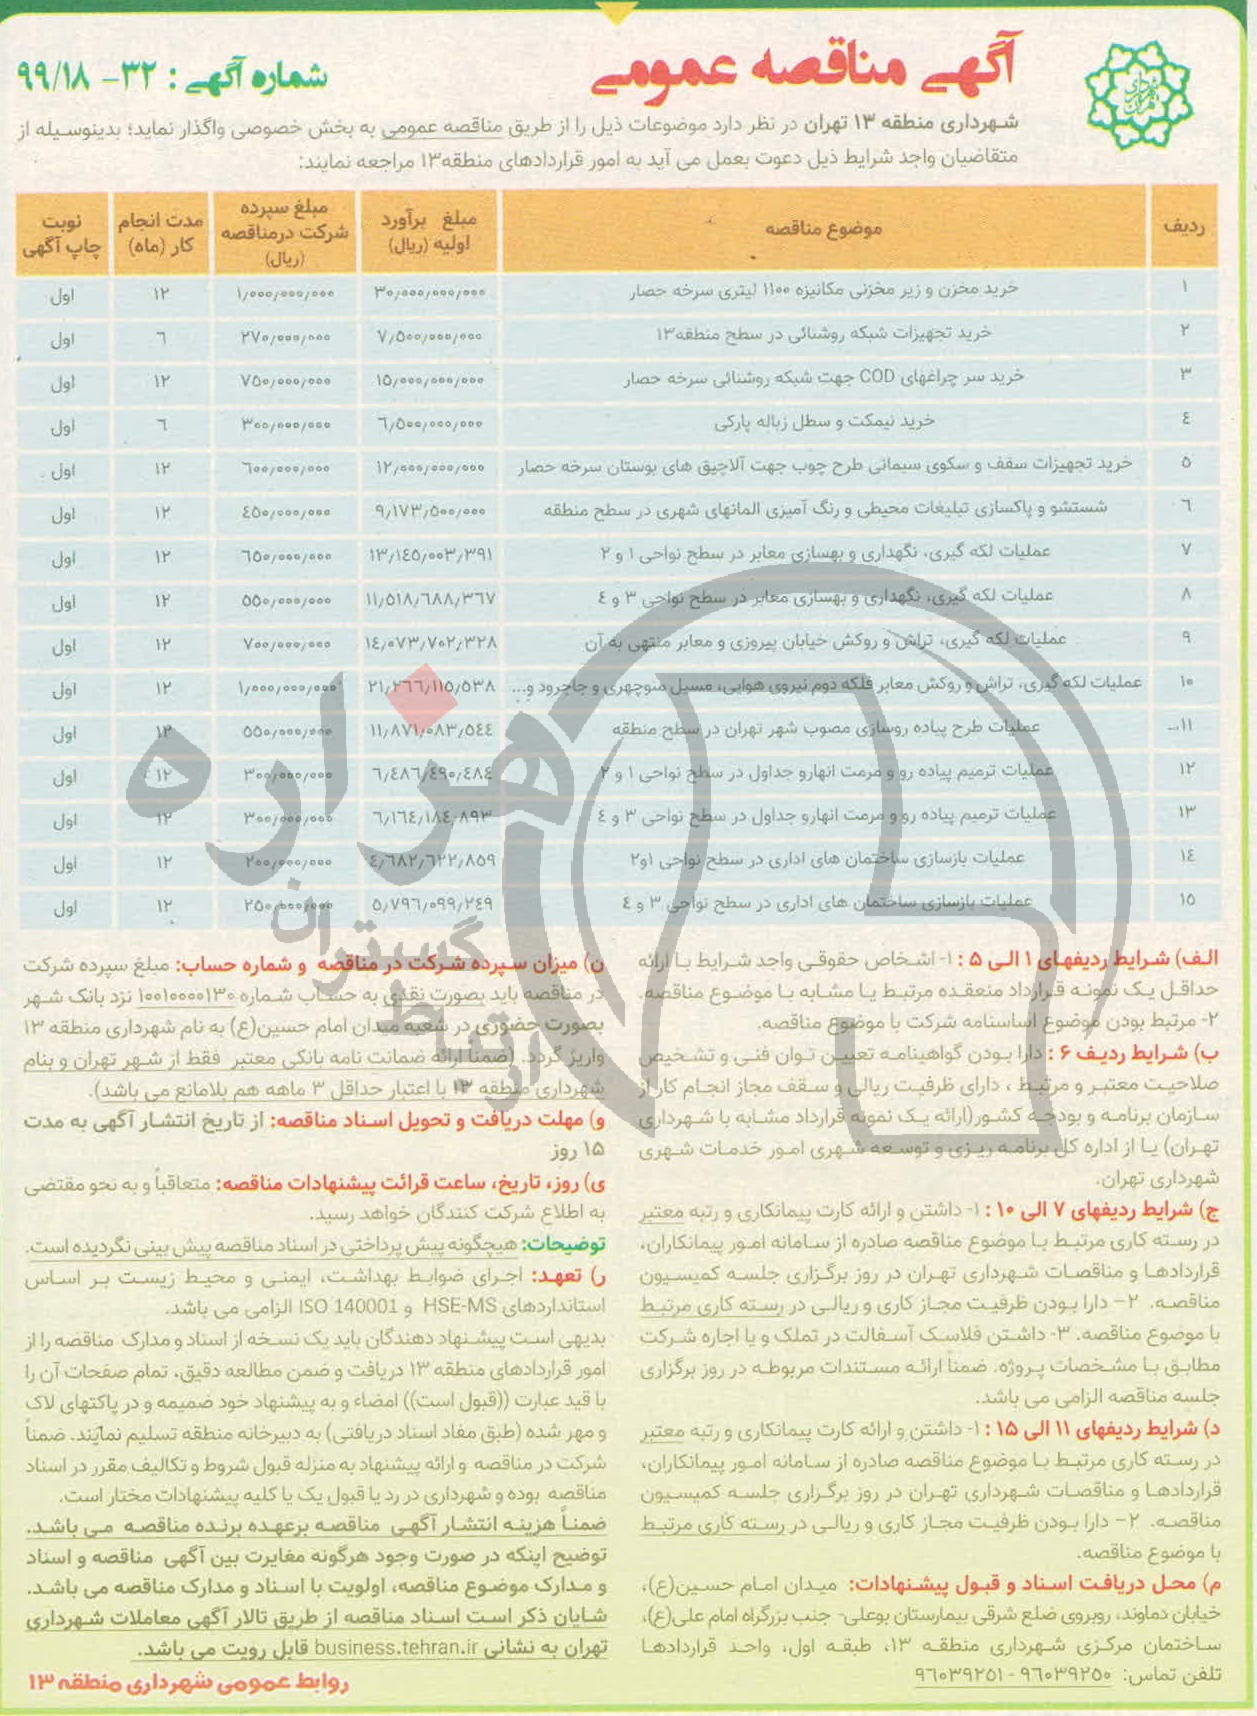 آگهی مناقصه عمومی
شماره آگهی : ۳۲- ۹۹/۱۸
شهرداری منطقه ۱۳ تهران در نظر دارد موضوعات ذیل را از طریق مناقصه عمومی به بخش خصوصی واگذار نماید؛ بدینوسیله از
متقاضیان واجد شرایط ذیل دعوت بعمل می آید به امور قراردادهای منطقه۱۳ مراجعه نمایند:
ردیف موضوع مناقصه مبلغ برآورد اولیه (ریال) مبلغ سپرده شرکت درمناقصه (ریال) مدت انجام کار (ماه) نوبت چاپ آگهی
۱ خرید مخزن و زیر مخزنی مکانیزه ۱۱۰۰ لیتری سرخه حصار ۳۰٫۰۰۰٫۰۰۰٫۰۰۰ ۱٫۰۰۰٫۰۰۰٫۰۰۰ ۱۲ اول
۲ خرید تجهیزات شبکه روشنائی در سطح منطقه۱۳ ۷٫۵۰۰٫۰۰۰٫۰۰۰ ۲۷۰٫۰۰۰٫۰۰۰ ۶ اول
۳ خرید سر چراغهای COD جهت شبکه روشنائی سرخه حصار ۱۵٫۰۰۰٫۰۰۰٫۰۰۰ ۷۵۰٫۰۰۰٫۰۰۰ ۱۲ اول
۴ خرید نیمکت و سطل زباله پارکی ۶٫۵۰۰٫۰۰۰٫۰۰۰ ۳۰۰٫۰۰۰٫۰۰۰ ۶ اول
۵ خرید تجهیزات سقف و سکوی سیمانی طرح چوب جهت آلاچیق های بوستان سرخه حصار ۱۲٫۰۰۰٫۰۰۰٫۰۰۰ ۶۰۰٫۰۰۰٫۰۰۰ ۱۲ اول
۶ شستشو و پاکسازی تبلیغات محیطی و رنگ آمیزی المانهای شهری در سطح منطقه ۹٫۱۷۳٫۵۰۰٫۰۰۰ ۴۵۰٫۰۰۰٫۰۰۰ ۱۲ اول
۷ عملیات لکه گیری، نگهداری و بهسازی معابر در سطح نواحی ۱ و ۲ ۱۳٫۱۴۵٫۰۰۳٫۳۹۱ ۶۵۰٫۰۰۰٫۰۰۰ ۱۲ اول
۸ عملیات لکه گیری، نگهداری و بهسازی معابر در سطح نواحی ۳ و ۴ ۱۱٫۵۱۸٫۶۸۸٫۳۶۷ ۵۵۰٫۰۰۰٫۰۰۰ ۱۲ اول
۹ عملیات لکه گیری، تراش و روکش خیابان پیروزی و معابر منتهی به آن ۱۴٫۰۷۳٫۷۰۲٫۳۲۸ ۷۰۰٫۰۰۰٫۰۰۰ ۱۲ اول
۱۰ عملیات لکه گیری، تراش و روکش معابر فلکه دوم نیروی هوایی، مسیل منوچهری و جاجرود و... ۲۱٫۲۶۶٫۱۱۵٫۵۳۸ ۱٫۰۰۰٫۰۰۰٫۰۰۰ ۱۲ اول
۱۱ عملیات طرح پیاده روسازی مصوب شهر تهران در سطح منطقه ۱۱٫۸۷۱٫۰۸۳٫۵۴۴ ۵۵۰٫۰۰۰٫۰۰۰ ۱۲ اول
۱۲ عملیات ترمیم پیاده رو و مرمت انهارو جداول در سطح نواحی ۱ و ۲ ۶٫۴۸۶٫۴۹۰٫۴۸۴ ۳۰۰٫۰۰۰٫۰۰۰ ۱۲ اول
۱۳ عملیات ترمیم پیاده رو و مرمت انهارو جداول در سطح نواحی ۳ و ۴ ۶٫۱۶۴٫۱۸۴٫۸۹۳ ۳۰۰٫۰۰۰٫۰۰۰ ۱۲ اول
۱۴ عملیات بازسازی ساختمان های اداری در سطح نواحی ۱و۲ ۴٫۶۸۲٫۶۲۲٫۸۵۹ ۲۰۰٫۰۰۰٫۰۰۰ ۱۲ اول
۱۵ عملیات بازسازی ساختمان های اداری در سطح نواحی ۳ و ۴ ۵٫۷۹۶٫۰۹۹٫۲۴۹ ۲۵۰٫۰۰۰٫۰۰۰ ۱۲ اول
الف) شرایط ردیفهای ۱ الی ۵ : ۱- اشخاص حقوقی واجد شرایط با ارائه
حداقل یک نمونه قرارداد منعقده مرتبط یا مشابه با موضوع مناقصه.
۲- مرتبط بودن موضوع اساسنامه شرکت با موضوع مناقصه.
ب) شرایط ردیف ۶ : دارا بودن گواهینامه تعیین توان فنی و تشخیص
صلاحیت معتبر و مرتبط ، دارای ظرفیت ریالی و سقف مجاز انجام کار از
سازمان برنامه و بودجه کشور(ارائه یک نمونه قرارداد مشابه با شهرداری
تهران) یا از اداره کل برنامه ریزی و توسعه شهری امور خدمات شهری
شهرداری تهران.
ج) شرایط ردیفهای ۷ الی ۱۰ : ۱- داشتن و ارائه کارت پیمانکاری و رتبه معتبر
در رسته کاری مرتبط با موضوع مناقصه صادره از سامانه امور پیمانکاران،
قراردادها و مناقصات شهرداری تهران در روز برگزاری جلسه کمیسیون
مناقصه. ۲- دارا بودن ظرفیت مجاز کاری و ریالی در رسته کاری مرتبط
با موضوع مناقصه. ۳- داشتن فلاسک آسفالت در تملک و یا اجاره شرکت
مطابق با مشخصات پروژه. ضمناً ارائه مستندات مربوطه در روز برگزاری
جلسه مناقصه الزامی می باشد.
د) شرایط ردیفهای ۱۱ الی ۱۵ : ۱- داشتن و ارائه کارت پیمانکاری و رتبه معتبر
در رسته کاری مرتبط با موضوع مناقصه صادره از سامانه امور پیمانکاران،
قراردادها و مناقصات شهرداری تهران در روز برگزاری جلسه کمیسیون
مناقصه. ۲- دارا بودن ظرفیت مجاز کاری و ریالی در رسته کاری مرتبط
با موضوع مناقصه.
م) محل دریافت اسناد و قبول پیشنهادات: میدان امام حسین(ع)،
خیابان دماوند، روبروی ضلع شرقی بیمارستان بوعلی- جنب بزرگراه امام علی(ع)،
ساختمان مرکزی شهرداری منطقه ۱۳، طبقه اول، واحد قراردادها
تلفن تماس: ۹۶۰۳۹۲۵۰ - ۹۶۰۳۹۲۵۱
ن) میزان سپرده شرکت در مناقصه و شماره حساب: مبلغ سپرده شرکت
در مناقصه باید بصورت نقدی به حساب شماره ۱۰۰۱۰۰۰۰۱۳۰ نزد بانک شهر
بصورت حضوری در شعبه میدان امام حسین(ع) به نام شهرداری منطقه ۱۳
واریز گردد. (ضمناً ارائه ضمانت نامه بانکی معتبر فقط از شهر تهران و بنام
شهرداری منطقه ۱۳ با اعتبار حداقل ۳ ماهه هم بلامانع می باشد).
و) مهلت دریافت و تحویل اسناد مناقصه: از تاریخ انتشار آگهی به مدت
۱۵ روز
ی) روز، تاریخ، ساعت قرائت پیشنهادات مناقصه: متعاقباً و به نحو مقتضی
به اطلاع شرکت کنندگان خواهد رسید.
توضیحات: هیچگونه پیش پرداختی در اسناد مناقصه پیش بینی نگردیده است.
ر) تعهد: اجرای ضوابط بهداشت، ایمنی و محیط زیست بر اساس
استانداردهای HSE-MS و ISO 140001 الزامی می باشد.
بدیهی است پیشنهاد دهندگان باید یک نسخه از اسناد و مدارک مناقصه را از
امور قراردادهای منطقه ۱۳ دریافت و ضمن مطالعه دقیق، تمام صفحات آن را
با قید عبارت ((قبول است)) امضاء و به پیشنهاد خود ضمیمه و در پاکتهای لاک
و مهر شده (طبق مفاد اسناد دریافتی) به دبیرخانه منطقه تسلیم نمایند. ضمناً
شرکت در مناقصه و ارائه پیشنهاد به منزله قبول شروط و تکالیف مقرر در اسناد
مناقصه بوده و شهرداری در رد یا قبول یک یا کلیه پیشنهادات مختار است.
ضمناً هزینه انتشار آگهی مناقصه برعهده برنده مناقصه می باشد.
توضیح اینکه در صورت وجود هرگونه مغایرت بین آگهی مناقصه و اسناد
و مدارک موضوع مناقصه، اولویت با اسناد و مدارک مناقصه می باشد.
شایان ذکر است اسناد مناقصه از طریق تالار آگهی معاملات شهرداری
تهران به نشانی business.tehran.ir قابل رویت می باشد.
روابط عمومی شهرداری منطقه ۱۳
هزاره
گستران
ارتباط